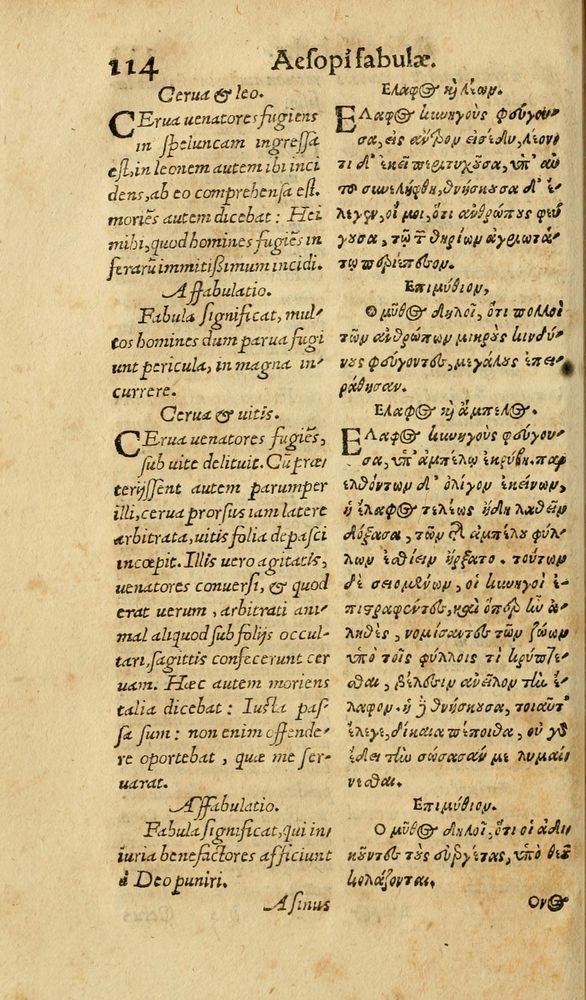 114 Aesopi fabulæ.
Cerua & leo.
CErua uenatores fugiens
in speluncam ingressa
est, in leonem autem ibi inci
dens, ab eo comprehensa est.
moriēs autem dicebat: Hei
mihi, quod homines fugiēs in
ferarū immitißimum incidi.
Affabulatio.
Fabula significat, mul-
tos homines dum parua fugi
unt pericula, in magna in-
currere.
Cerua & uitis.
CErua uenatores fugiēs,
sub uite delituit. Cū præ
terijssent autem parumper
illi, cerua prorsus iam latere
arbitrata, uitis folia depasci
incœpit. Illis uero agitatis,
uenatores conuersi, & quod
erat uerum, arbitrati ani-
mal aliquod sub folijs occul-
tari, sagittis confecerunt cer
uam. Hæc autem moriens
talia dicebat: Iusta pas-
sa sum: non enim offende-
re oportebat, quæ me ser-
uarat.
Affabulatio.
Fabula significat, qui in-
iuria benefactores afficiunt
à Deo puniri.
Asinus
Ελαφος κὴ λέων.
ΕΛαφος κυνηγοὺς φεύγου-
σα, εἰς ἄντρον εἰσέδυ, λέοντι
τι δ' ἐκεῖ περιτυχοῦσα, ὑπ' αὐ
τοῦ συνελήφθη, θνήσκουσα δ' ἔ-
λεγεν, οἴ μοι, ὅτι ἀνθρώπους φεύ
γουσα, τῷ τῶν θηρίων ἀγριωτά-
τῳ περιέπεσον.
Επιμύθιον,
Ο μῦθος δηλοῖ, ὅτι πολλοὶ
τῶν ἀνθρώπων μικροὺς κινδύ-
νους φεύγοντες, μεγάλους ἐπει-
ράθησαν.
Ελαφος κὴ ἄμπελος.
ΕΛαφος κυνηγοὺς φεύγου-
σα, ὑπ' ἀμπέλῳ ἐκρύβη. παρ
ελθόντων δ' ὀλίγον ἐκείνων,
ἡ ἔλαφος τελέως ἤδη λαθεῖν
δόξασα, τῶν τῆς ἀμπέλου φύλ-
λων ἐσθίειν ἤρξατο. τούτων
δὲ σειομένων, οἱ κυνηγοὶ ἐ-
πιστραφέντες, καὶ ὅπερ ἦν ἀ-
ληθὲς, νομίσαντες τῶν ζώων
ὑπὸ τοῖς φύλλοις τὶ κρύπτε-
σθαι, βέλεσιν ἀνεῖλον τὴν ἔ-
λαφον. ἡ δὲ θνήσκουσα, τοιαῦτ'
ἔλεγε, δίκαια πέπονθα, οὐ γὰρ
ἔδει τὴν σώσασάν με λυμαί-
νεσθαι.
Επιμύθιον.
Ο μῦθος δηλοῖ, ὅτι οἱ ἀδι-
κοῦντες τοὺς εὐεργέτας, ὑπὸ θεοῦ
κολάζονται.
Ονος